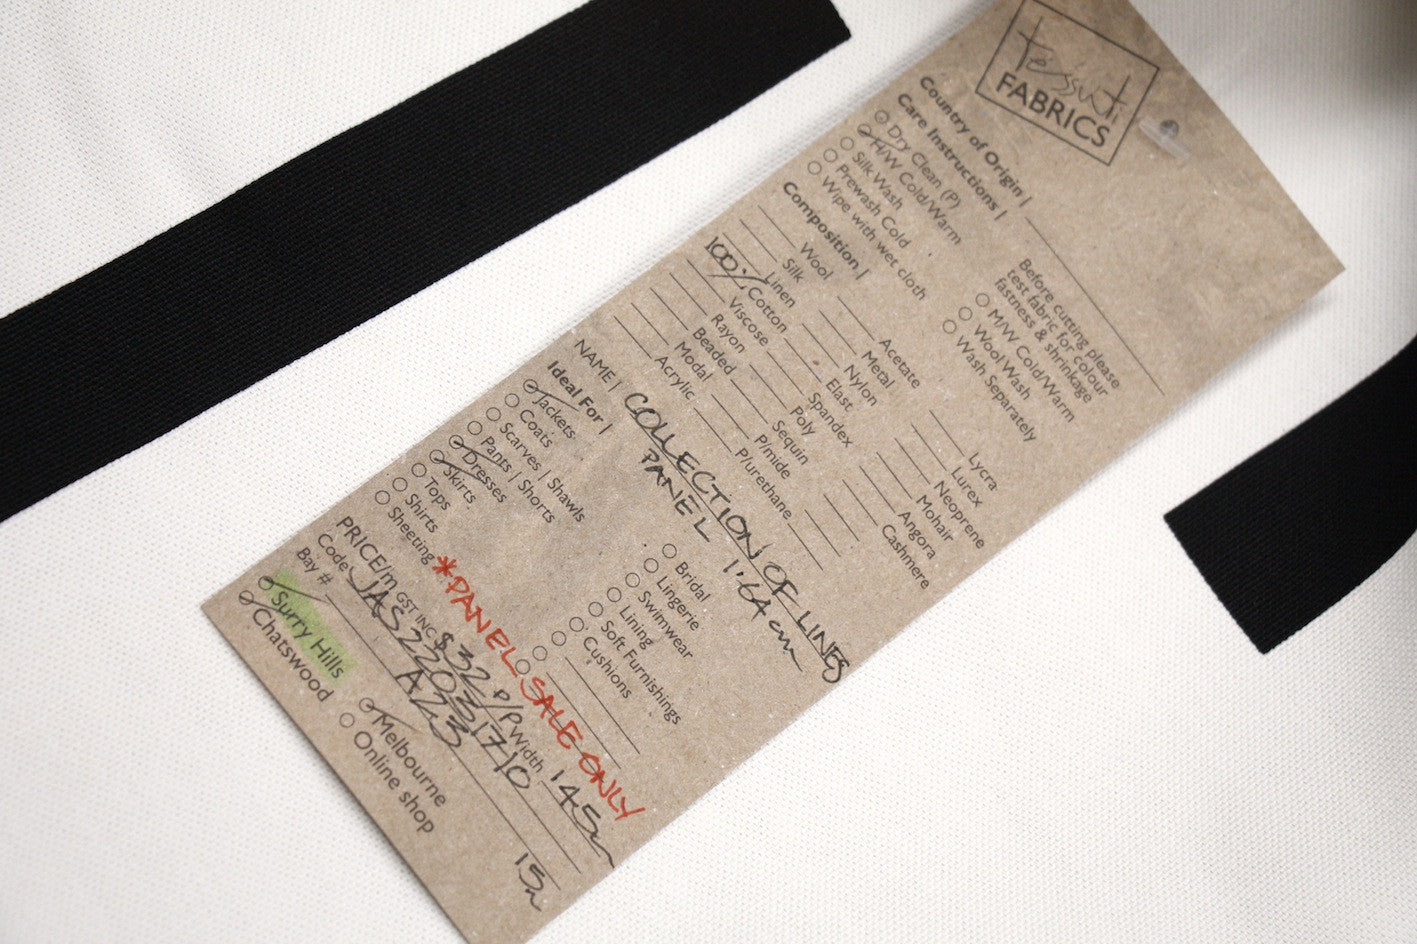 tessuti
FABRICS
Country of Origin |
Care Instructions |
Dry Clean (P)
H/W Cold/Warm
Silk Wash
Prewash Cold
Wipe with wet cloth
Before cutting please
test fabric for colour
fastness & shrinkage
M/W Cold/Warm
Wool Wash
Wash Separately
Composition |
Wool
Silk
Linen
100% Cotton
Viscose
Rayon
Beaded
Modal
Acrylic
Acetate
Metal
Nylon
Elast
Spandex
Poly
Sequin
P/mide
P/urethane
Lycra
Lurex
Neoprene
Mohair
Angora
Cashmere
NAME | COLLECTION OF LINES
PANEL 1.64 cm
Ideal For |
Jackets
Coats
Scarves | Shawls
Pants | Shorts
Dresses
Skirts
Tops
Shirts
Sheeting
Bridal
Lingerie
Swimwear
Lining
Soft Furnishings
Cushions
*PANEL SALE ONLY
PRICE/m GST INC $32 P/P Width 145
Code JAS220317/10
Bay # A23
15
Surry Hills
Chatswood
Melbourne
Online shop